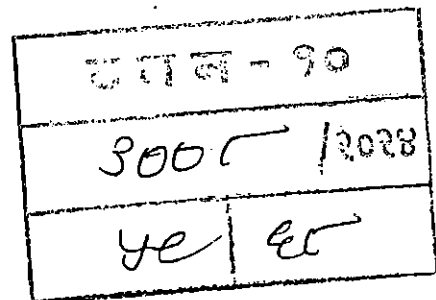 टनन - १०
३००८ /२०२४
५९ | ६८